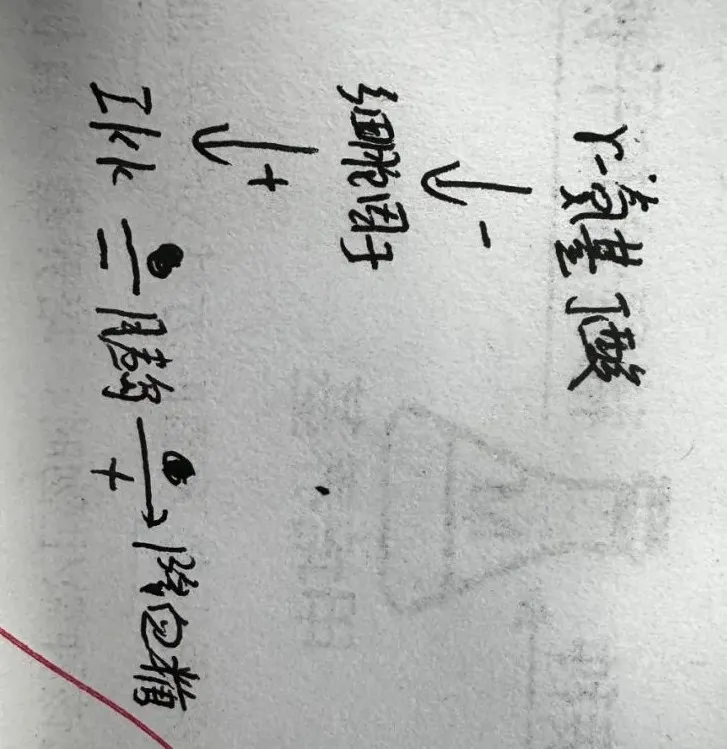 γ-氨基丁酸
↓ -
细胞因子
↓ +
IKK — - 胰岛 → + 降血糖